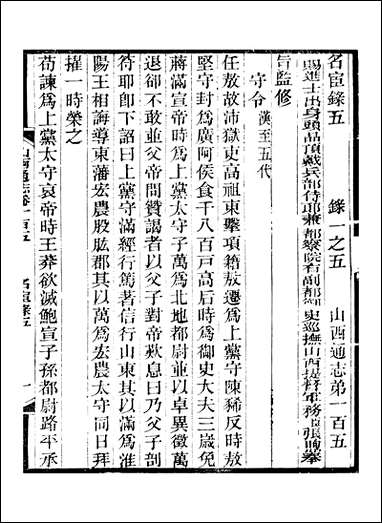 名宦錄五　錄一之五　山西通志第一百五
賜進士出身頭品頂戴兵部侍郎兼都察院右副都御史巡撫山西提督軍務臣張煦奉
旨監修
守令　漢至五代
任敖故沛獄吏高祖東擊項籍敖遷爲上黨守陳豨反時敖
堅守封爲廣阿侯食千八百戸高后時爲御史大夫三歲免
蔣滿宣帝時爲上黨太守子萬爲北地都尉並以卓異徵萬
退卻不敢並父帝問贊謁者以父子對帝歎息曰乃父子剖
符耶卽下詔曰上黨守滿經行篤著信行山東其以滿爲淮
陽王相誨導東藩宏農股肱郡其以萬爲宏農太守同日拜
擢一時榮之
荀諫爲上黨太守哀帝時王莽欲滅鮑宣子孫都尉路平承
山西通志卷一百五　名宦錄五　一